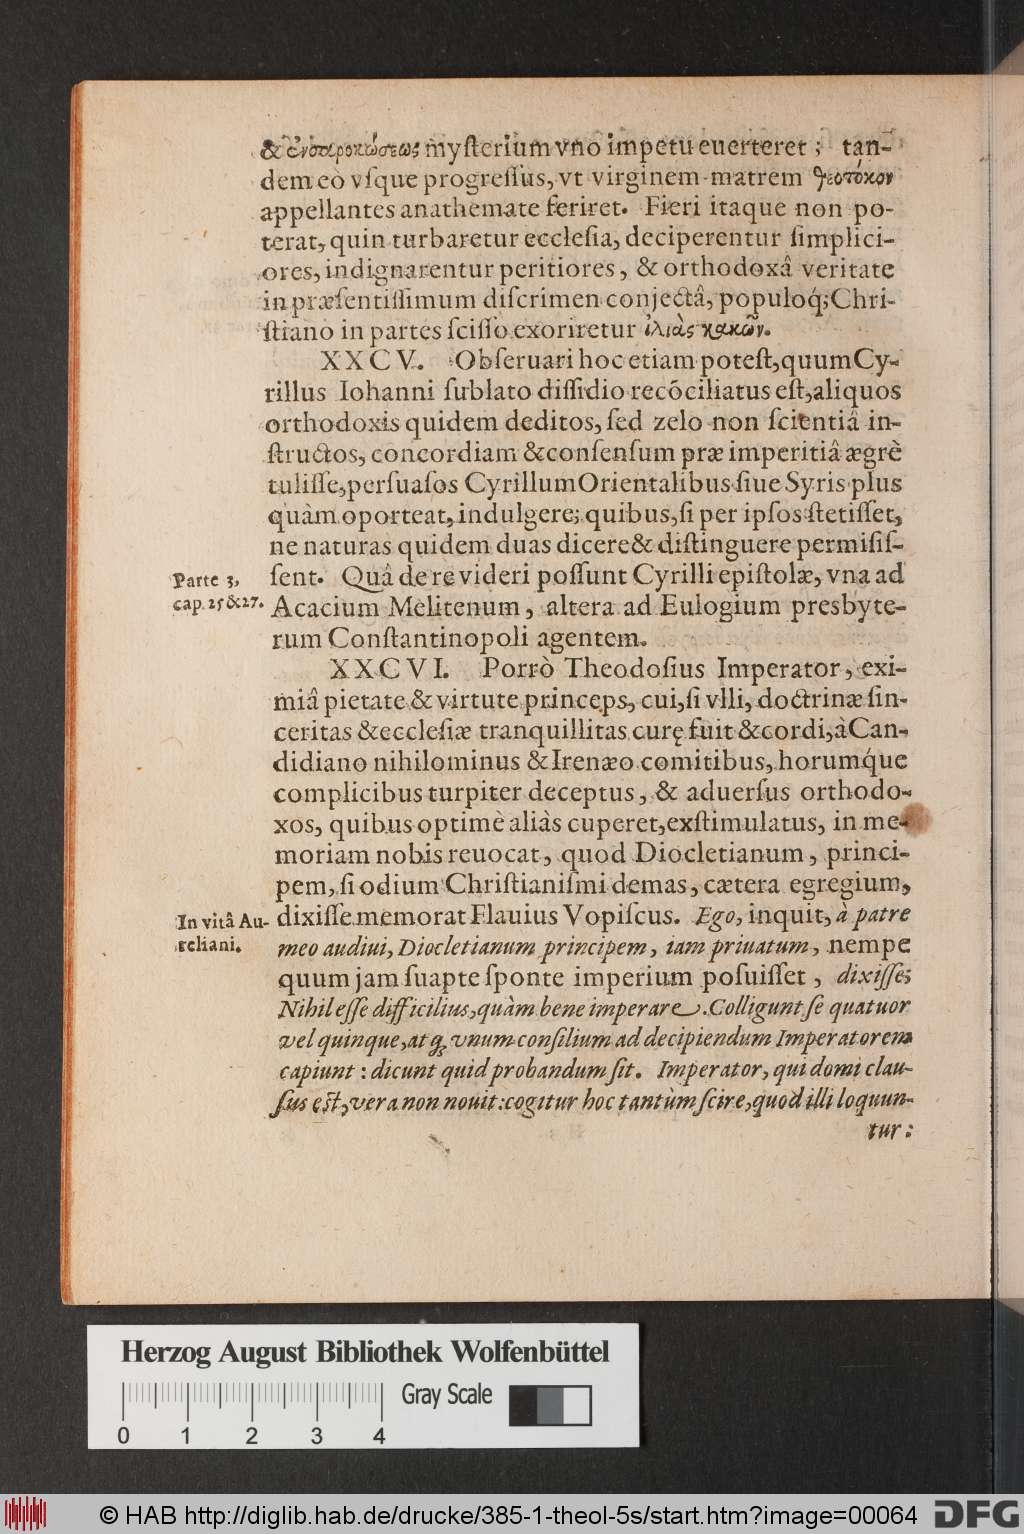 & ἐνσαρκώσεως mysterium vno impetu euerteret; tan-
dem eò vsque progressus, vt virginem matrem θεοτόκον
appellantes anathemate feriret. Fieri itaque non po-
terat, quin turbaretur ecclesia, deciperentur simplici-
ores, indignarentur peritiores, & orthodoxâ veritate
in præsentissimum discrimen conjectâ, populoq́; Chri-
stiano in partes scisso exoriretur ἰλιὰς κακῶν.
XXCV. Obseruari hoc etiam potest, quum Cy-
rillus Iohanni sublato dissidio recõciliatus est, aliquos
orthodoxis quidem deditos, sed zelo non scientiâ in-
structos, concordiam & consensum præ imperitiâ ægrè
tulisse, persuasos Cyrillum Orientalibus siue Syris plus
quàm oporteat, indulgere; quibus, si per ipsos stetisset,
ne naturas quidem duas dicere & distinguere permisis-
Parte 3,
cap. 25 & 27.
sent. Quâ de re videri possunt Cyrilli epistolæ, vna ad
Acacium Melitenum, altera ad Eulogium presbyte-
rum Constantinopoli agentem.
XXCVI. Porrò Theodosius Imperator, exi-
miâ pietate & virtute princeps, cui, si vlli, doctrinæ sin-
ceritas & ecclesiæ tranquillitas curę fuit & cordi, à Can-
didiano nihilominus & Irenæo comitibus, horumq́ue
complicibus turpiter deceptus, & aduersus orthodo-
xos, quibus optimè aliàs cuperet, exstimulatus, in me-
moriam nobis reuocat, quod Diocletianum, princi-
pem, si odium Christianismi demas, cætera egregium,
In vitâ Au-
reliani.
dixisse memorat Flauius Vopiscus. Ego, inquit, à patre
meo audiui, Diocletianum principem, iam priuatum, nempe
quum jam suapte sponte imperium posuisset, dixisse;
Nihil esse difficilius, quàm bene imperare. Colligunt se quatuor
vel quinque, atq; vnum consilium ad decipiendum Imperatorem
capiunt: dicunt quid probandum sit. Imperator, qui domi clau-
sus est, vera non nouit: cogitur hoc tantùm scire, quod illi loquun-
tur:
Herzog August Bibliothek Wolfenbüttel
Gray Scale
0 1 2 3 4
© HAB http://diglib.hab.de/drucke/385-1-theol-5s/start.htm?image=00064
DFG